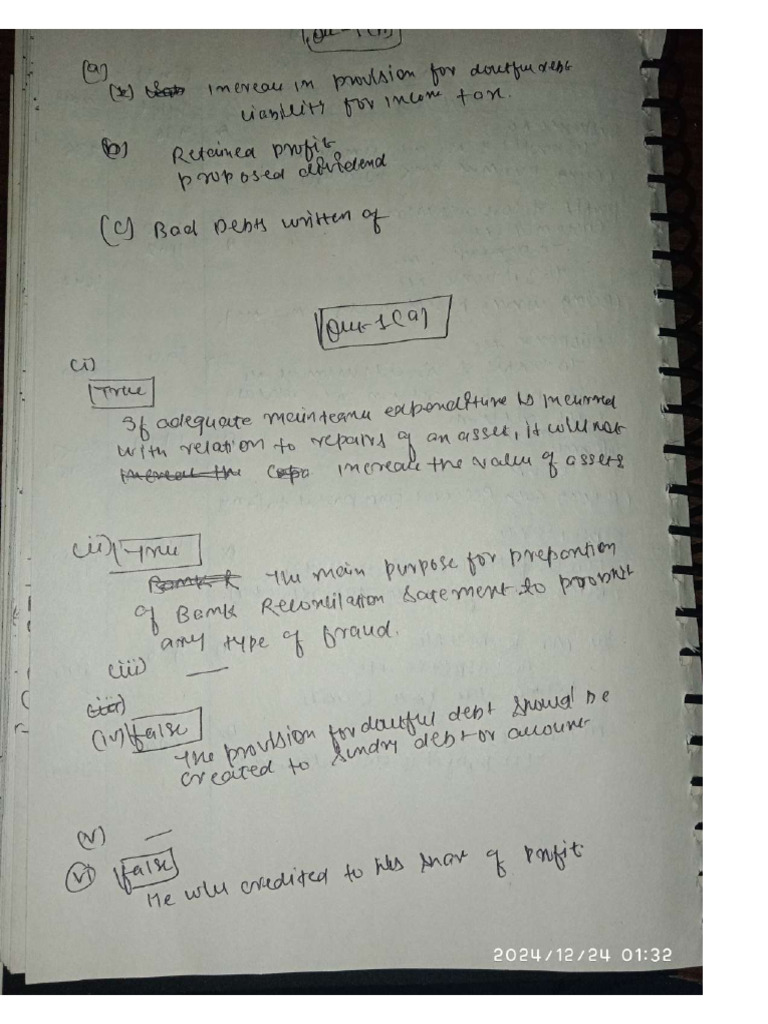 Que-1(b)
(a)
increase in provision for doutful debt
liability for income tax.
(b) Retained profit
proposed dividend
(c) Bad Debts written of
Que-1(a)
(i)
True
If adequate meinteanu expenditure is incurred
with relation to repairs of an asset, it will not
increase the value of assets
(ii) True
The main purpose for prepartion
of Bank Reconcilation Satement to
any type of fraud.
(iii) —
(iv) false
The provision for doutful debt should be
created to Sundry debtor account
(v) —
(vi) false
He will credited to his share of profit
2024/12/24 01:32